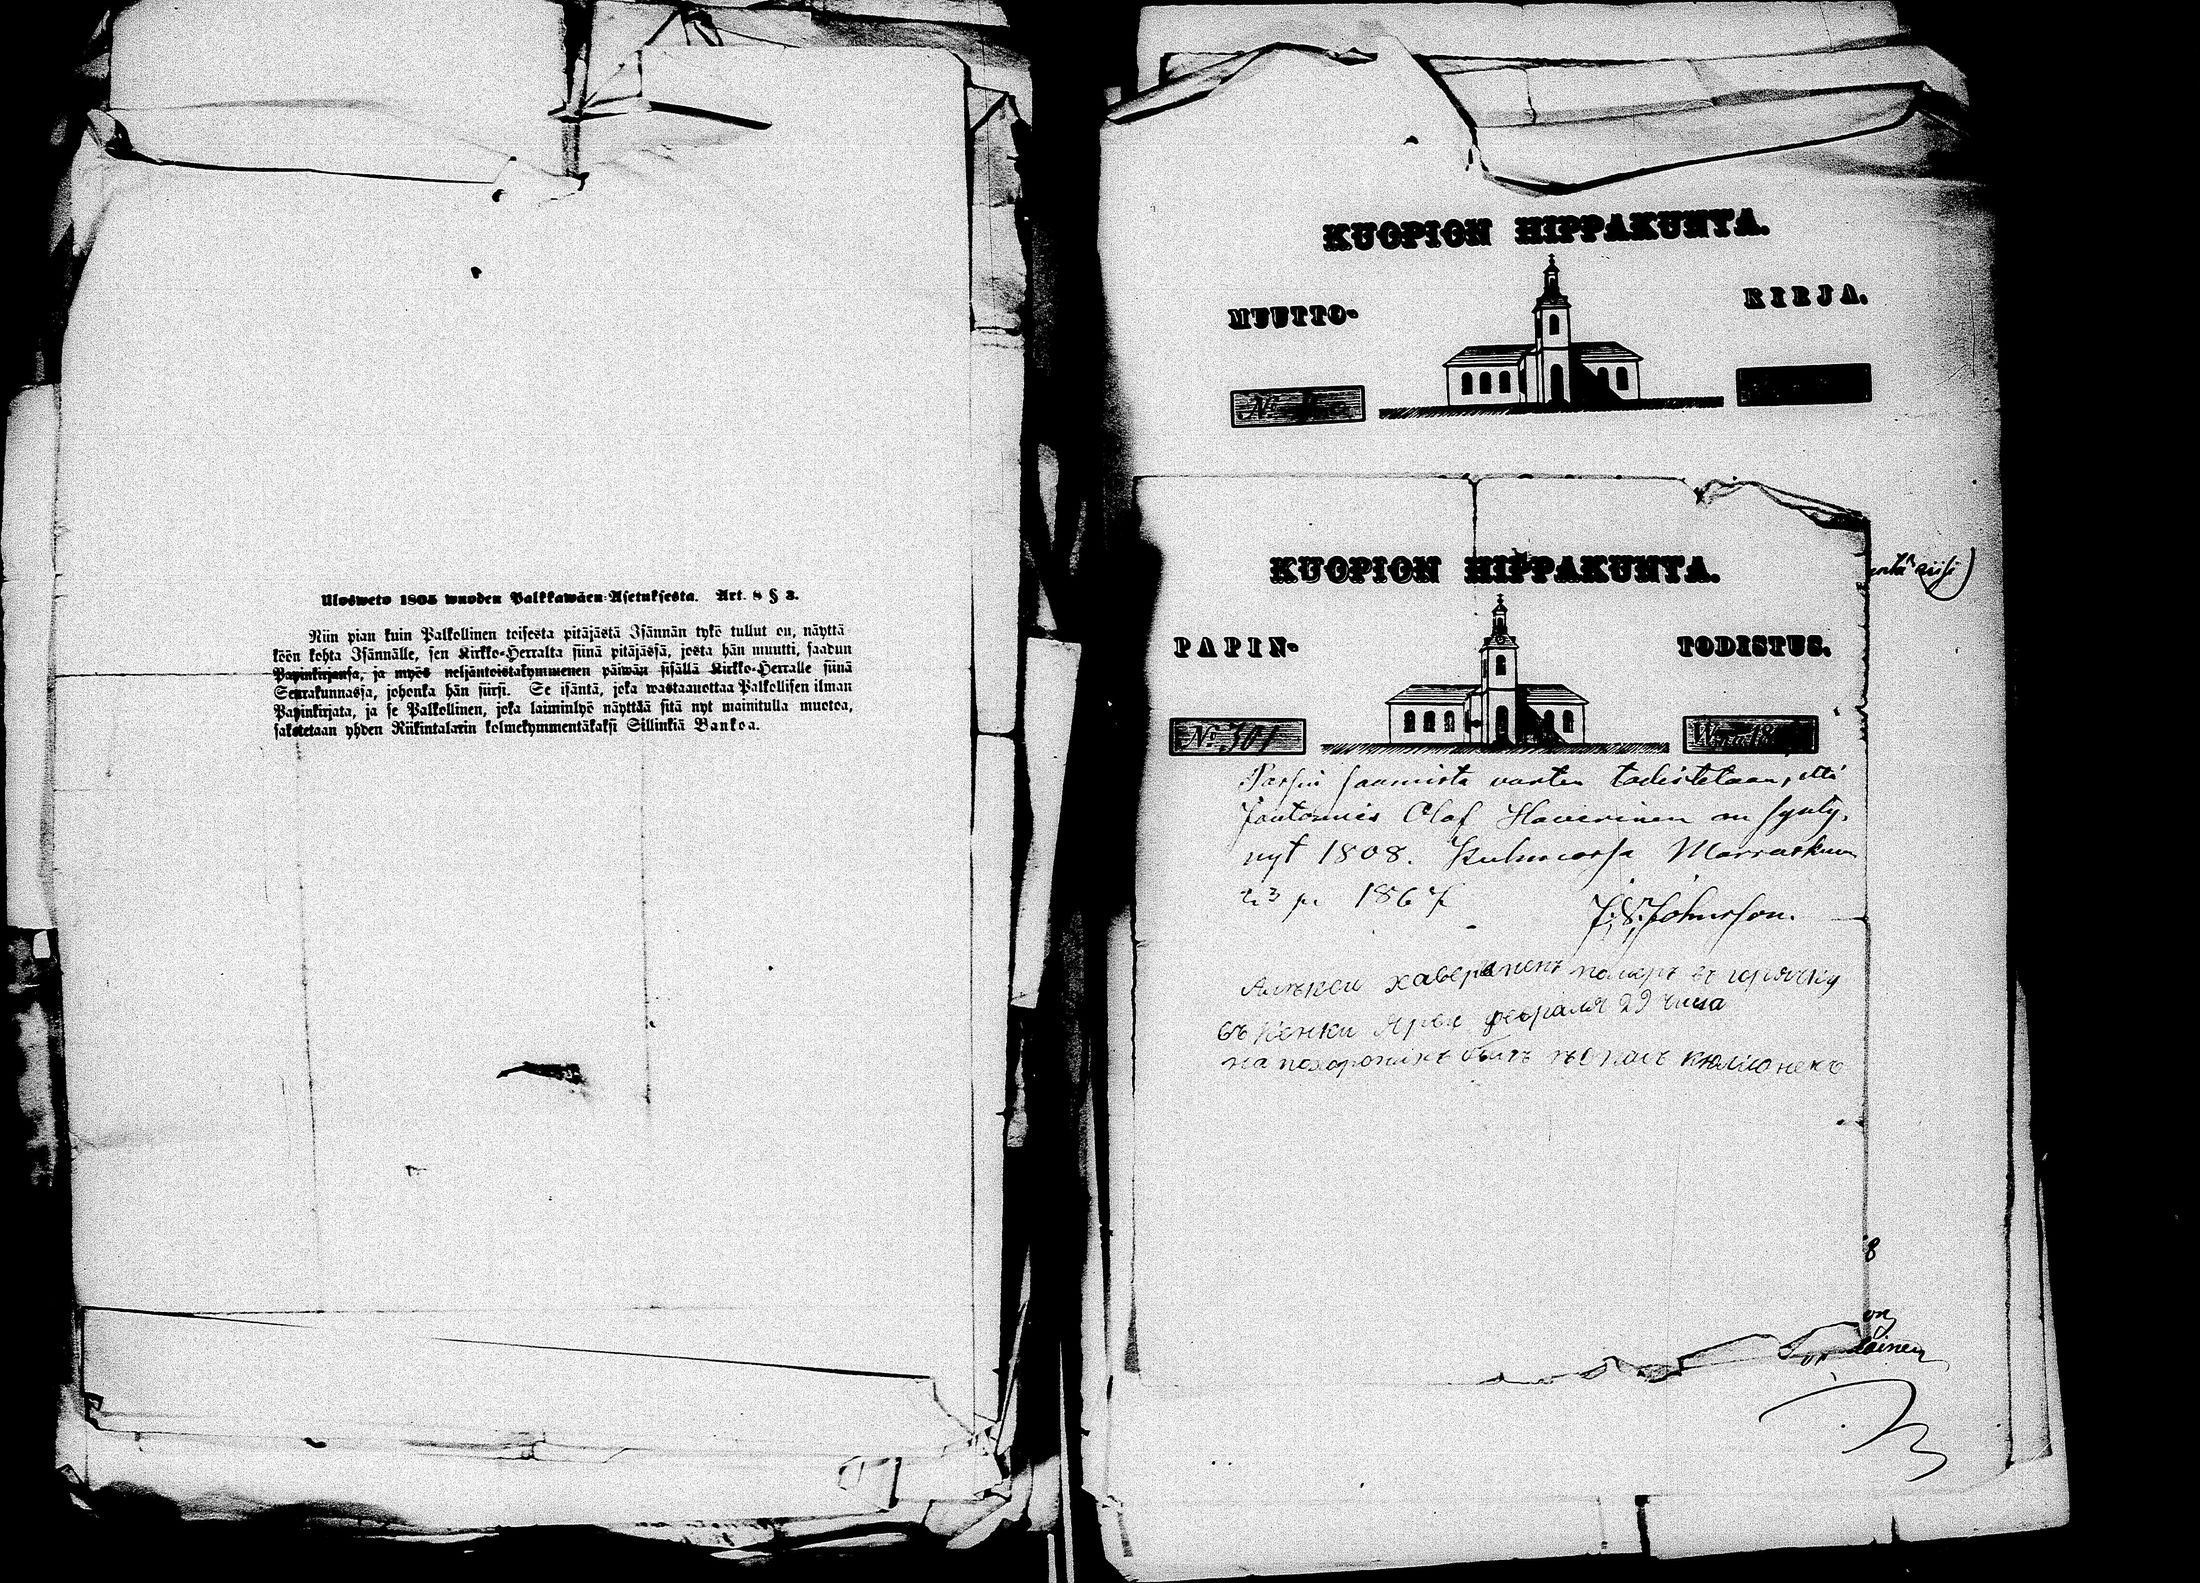 Ulosweto 1805 wuoden Palkkawäen-Asetuksesta. Art. 8 § 3.
Niin pian kuin Palkollinen toisesta pitäjästä Isännän tykö tullut on, näyttä
köön kohta Isännälle, sen Kirkko-Herralta siinä pitäjässä, josta hän muutti, saadun
Papinkirjansa, ja myös neljäntoistakymmenen päiwän sisällä Kirkko-Herralle siinä
Seurakunnassa, johonka hän siirsi. Se isäntä, joka wastaanottaa Palkollisen ilman
Papinkirjata, ja se Palkollinen, joka laiminlyö näyttää sitä nyt mainitulla muotoa,
sakotetaan yhden Riikintalarin kolmekymmentäkaksi Sillinkiä Bankoa.
KUOPION HIPPAKUNTA.
MUUTTO- KIRJA.
No
KUOPION HIPPAKUNTA.
PAPIN- TODISTUS.
No 301 W. 18
Passin saamista varten todistetaan, että
Olof Haverinen on synty-
nyt 1808. Kuhmossa Marraskuun
23 p. 1867
Johnsson.
хаверинен в горячку
въ Кенки Ярви февраля 29 числа
на похоронинъ былъ
8
on
lainen